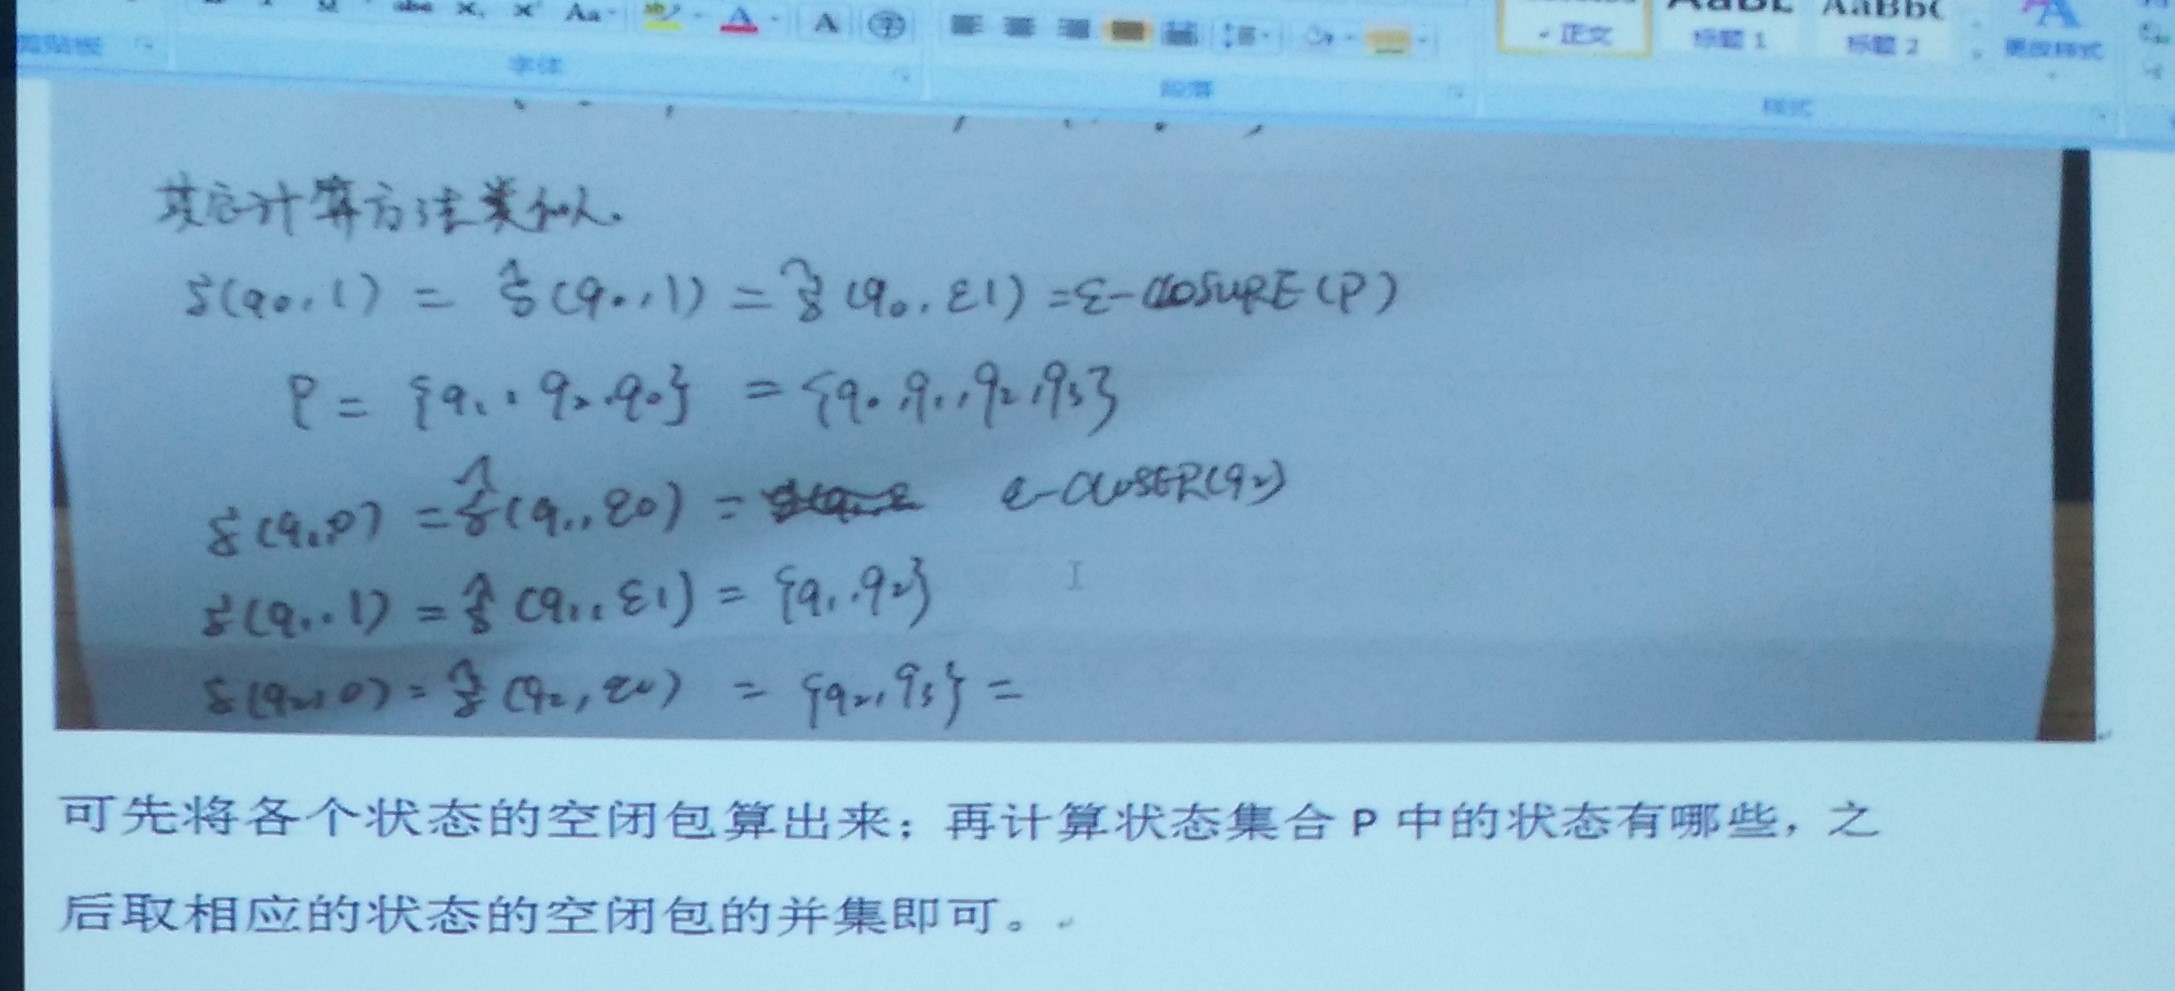 Aa
A
A
字体
段落
样式
正文
标题 1
标题 2
AaBbC
更改样式
其它计算方法类似.
δ(q₀,1) = δ̂(q₀,1) = δ̂(q₀,ε1) = ε-CLOSURE(P)
P = {q₁, q₂, q₀} = {q₀, q₁, q₂, q₃}
δ(q₁,0) = δ̂(q₁,ε0) = ε-CLOSER(q₂)
δ(q₁,1) = δ̂(q₁,ε1) = {q₁,q₂}
δ(q₂,0) = δ̂(q₂,ε0) = {q₂,q₃} =
可先将各个状态的空闭包算出来；再计算状态集合 P 中的状态有哪些，之
后取相应的状态的空闭包的并集即可。